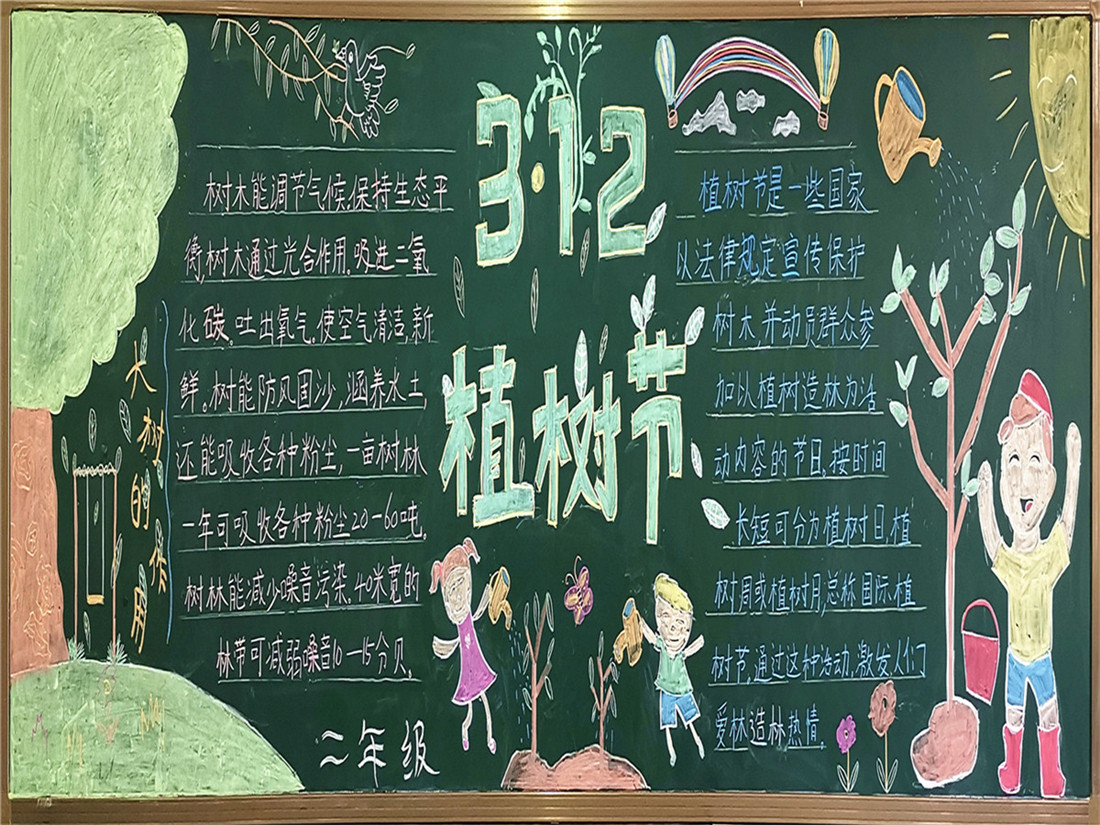 3·12
植树节
大树的作用
树木能调节气候,保持生态平
衡,树木通过光合作用。吸进二氧
化碳。吐出氧气。使空气清洁,新
鲜。树能防风固沙,涵养水土,
还能吸收各种粉尘,一亩树林
一年可吸收各种粉尘20-60吨。
树林能减少噪音污染.40米宽的
林带可减弱噪音10-15分贝。
二年级
植树节是一些国家
以法律规定宣传保护
树木,并动员群众参
加以植树造林为活
动内容的节日,按时间
长短可分为植树日,植
树周或植树月,总称国际植
树节,通过这种活动,激发人们
爱林造林热情。